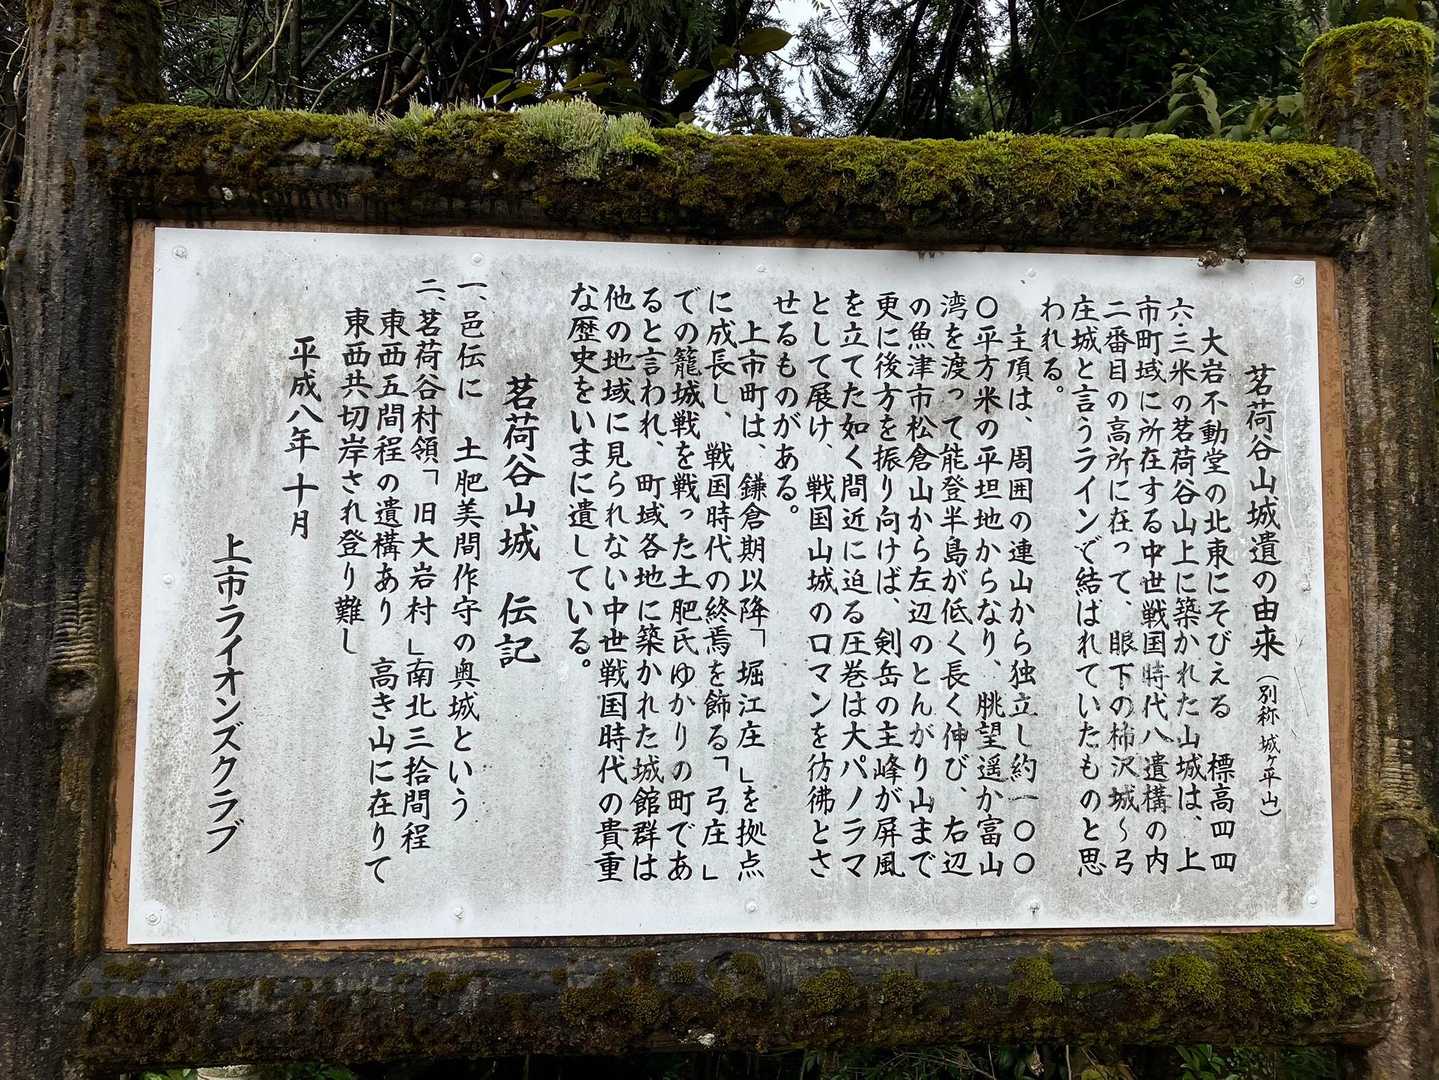 茗荷谷山城遺の由来（別称 城ヶ平山）
大岩不動堂の北東にそびえる 標高四四
六・三米の茗荷谷山上に築かれた山城は、上
市町域に所在する中世戦国時代八遺構の内
二番目の高所に在って、眼下の柿沢城～弓
庄城と言うラインで結ばれていたものと思
われる。
主頂は、周囲の連山から独立し約一〇〇
〇平方米の平坦地からなり、眺望遥か富山
湾を渡って能登半島が低く長く伸び、右辺
の魚津市松倉山から左辺のとんがり山まで
更に後方を振り向けば、剣岳の主峰が屏風
を立てた如く間近に迫る圧巻は大パノラマ
として展け、戦国山城のロマンを彷彿とさ
せるものがある。
上市町は、鎌倉期以降「堀江庄」を拠点
に成長し、戦国時代の終焉を飾る「弓庄」
での籠城戦を戦った土肥氏ゆかりの町であ
ると言われ、町域各地に築かれた城館群は
他の地域に見られない中世戦国時代の貴重
な歴史をいまに遺している。
茗荷谷山城 伝記
一、邑伝に 土肥美間作守の奥城という
二、茗荷谷村領「旧大岩村」南北三拾間程
東西五間程の遺構あり 高き山に在りて
東西共切岸され登り難し
平成八年 十月
上市ライオンズクラブ